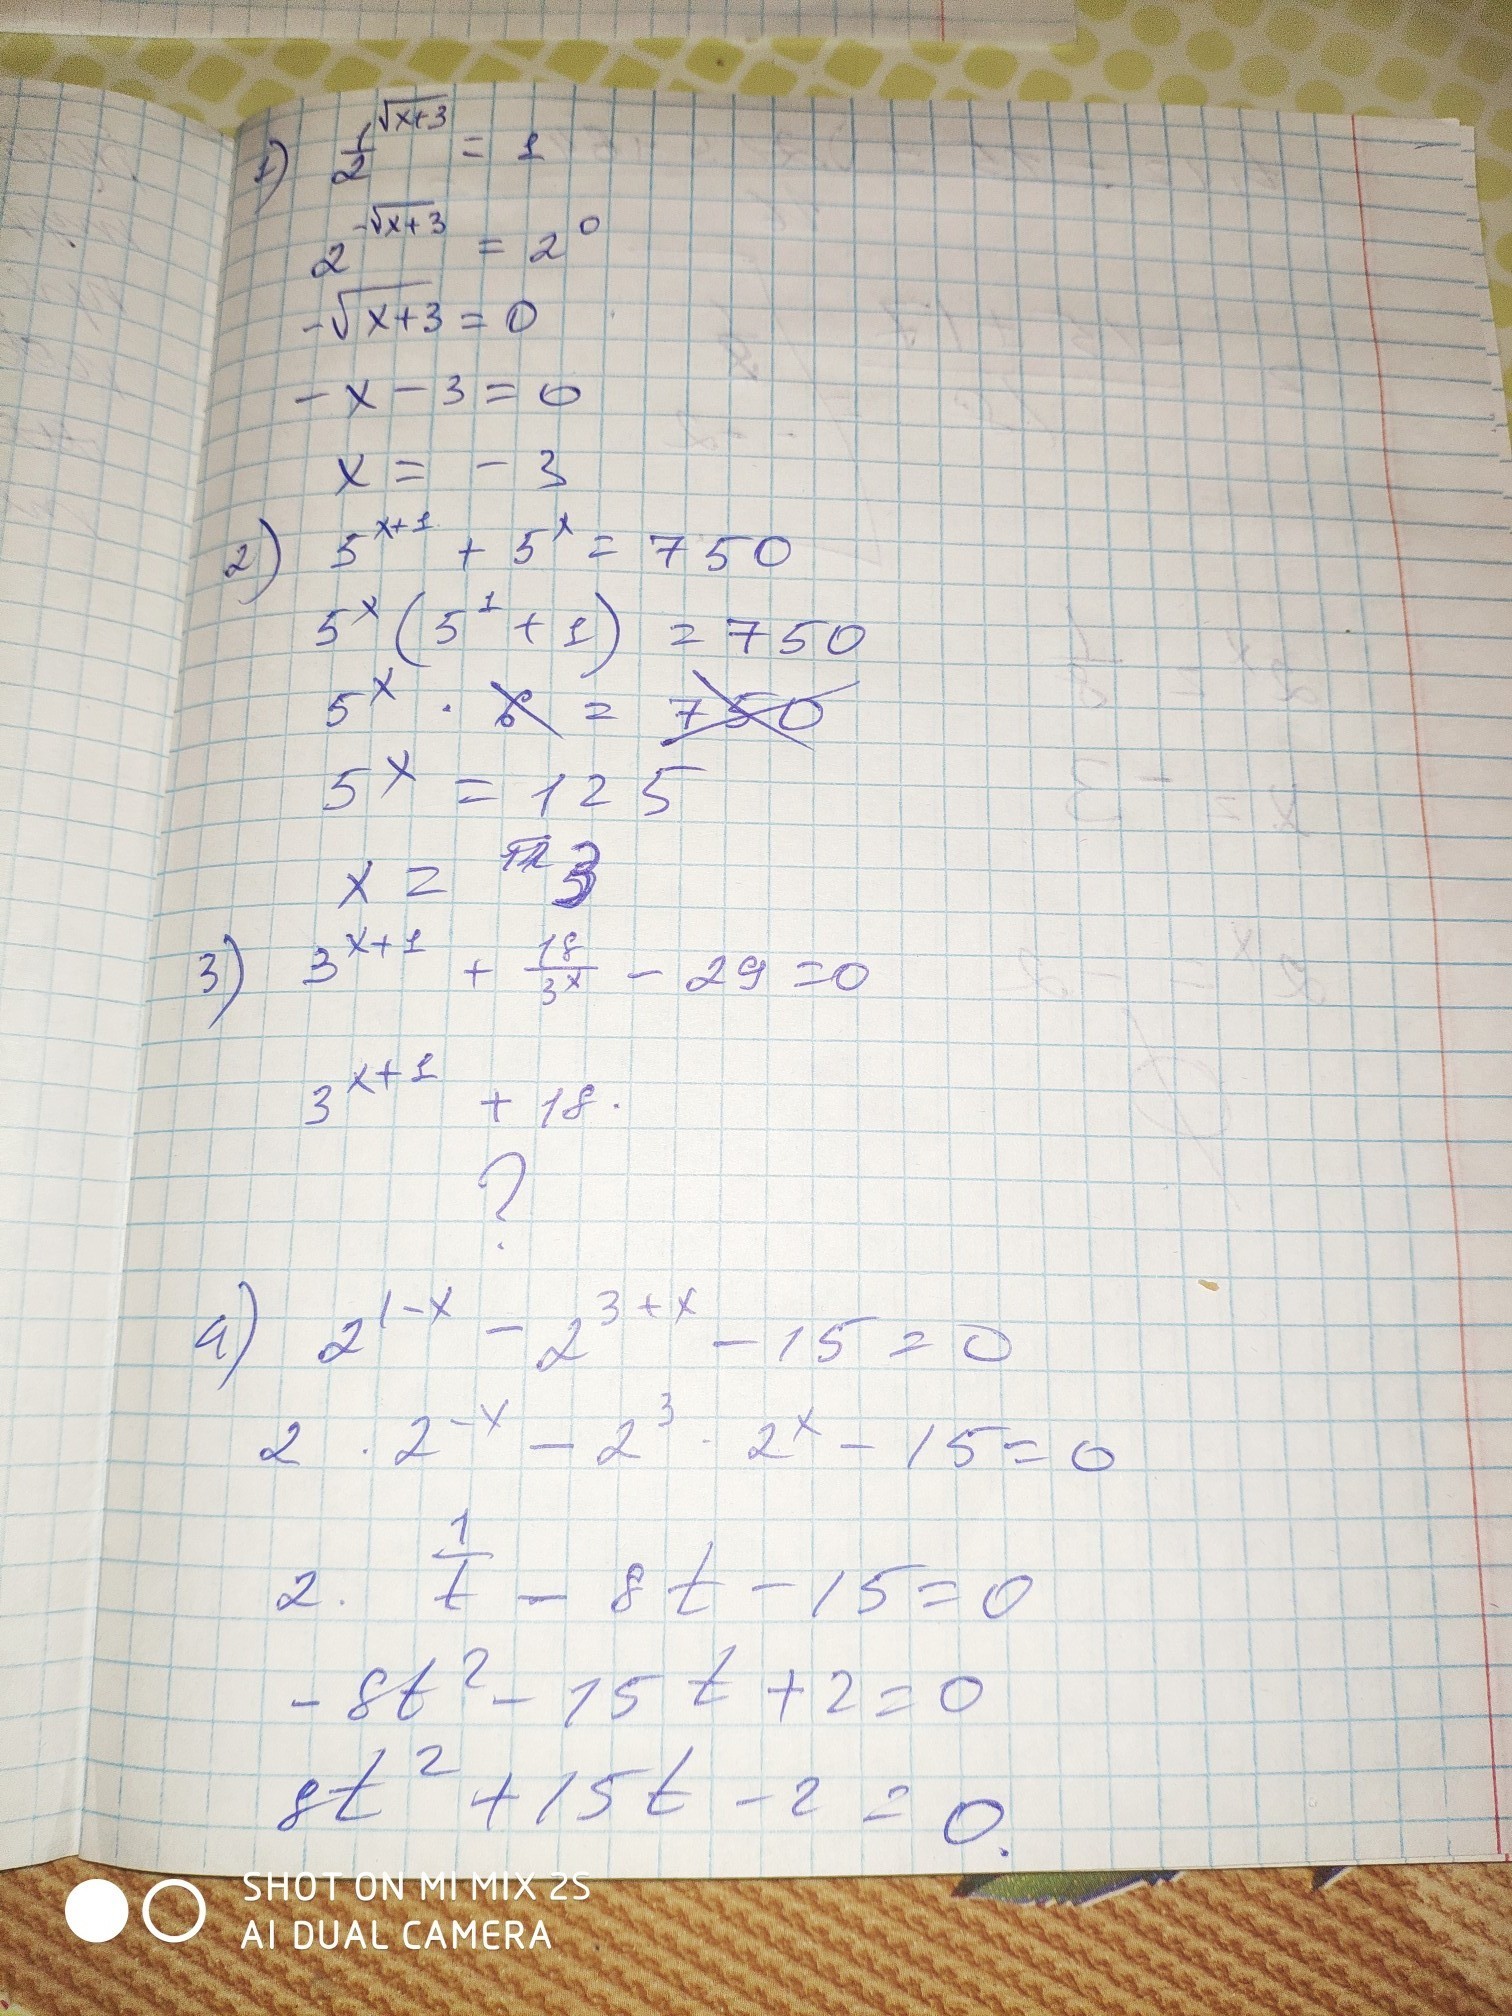 1) 1/2^√(x+3) = 1
2^(-√(x+3)) = 2^0
-√(x+3) = 0
-x - 3 = 0
x = -3
2) 5^(x+1) + 5^x = 750
5^x (5^1 + 1) = 750
5^x · 6 = 750
5^x = 125
x = 3
3) 3^(x+1) + 18/3^x - 29 = 0
3^(x+1) + 18 ·
?
4) 2^(1-x) - 2^(3+x) - 15 = 0
2 · 2^(-x) - 2^3 · 2^x - 15 = 0
2 · 1/t - 8t - 15 = 0
-8t^2 - 15t + 2 = 0
8t^2 + 15t - 2 = 0.
SHOT ON MI MIX 2S
AI DUAL CAMERA